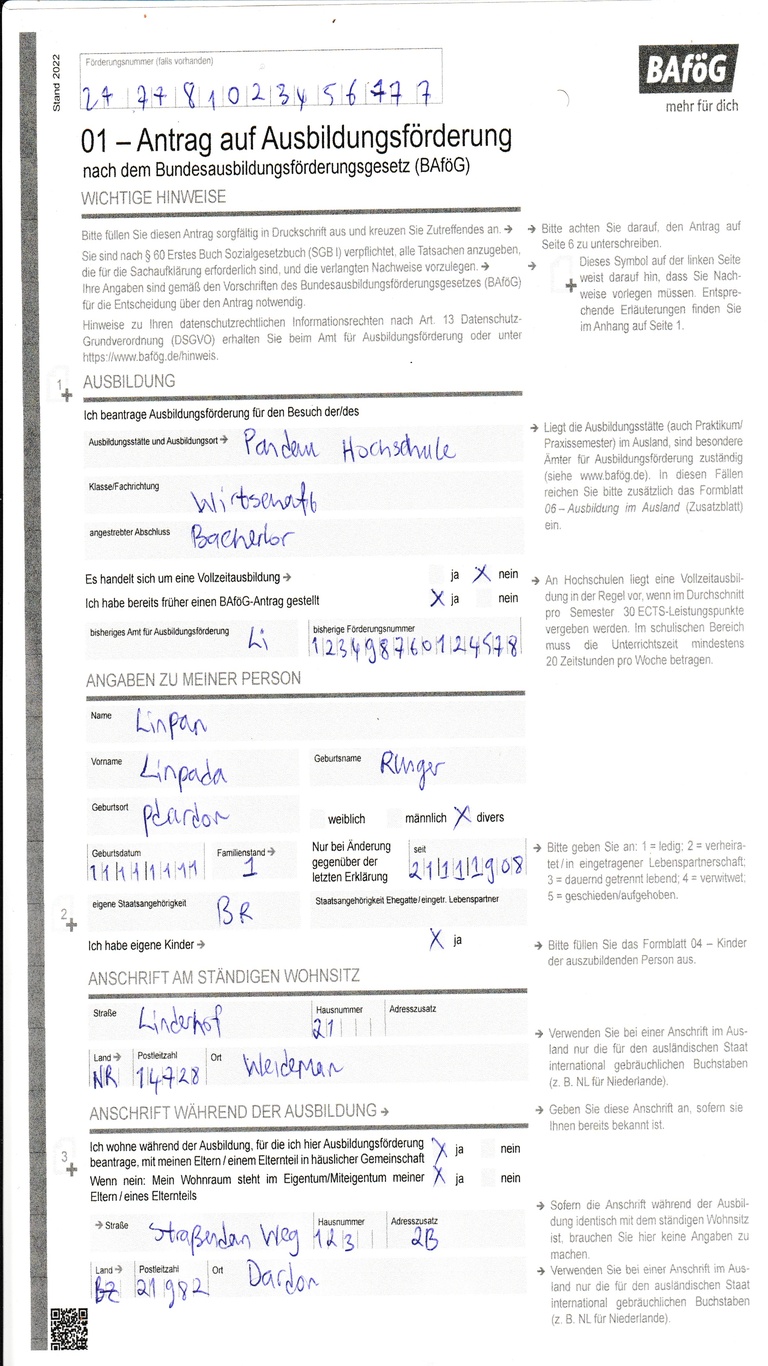 Stand 2022
Förderungsnummer (falls vorhanden)
BAföG
mehr für dich
01 – Antrag auf Ausbildungsförderung
nach dem Bundesausbildungsförderungsgesetz (BAföG)
WICHTIGE HINWEISE
Bitte füllen Sie diesen Antrag sorgfältig in Druckschrift aus und kreuzen Sie Zutreffendes an. →
Sie sind nach § 60 Erstes Buch Sozialgesetzbuch (SGB I) verpflichtet, alle Tatsachen anzugeben,
die für die Sachaufklärung erforderlich sind, und die verlangten Nachweise vorzulegen. →
Ihre Angaben sind gemäß den Vorschriften des Bundesausbildungsförderungsgesetzes (BAföG)
für die Entscheidung über den Antrag notwendig.
Hinweise zu Ihren datenschutzrechtlichen Informationsrechten nach Art. 13 Datenschutz-
Grundverordnung (DSGVO) erhalten Sie beim Amt für Ausbildungsförderung oder unter
https://www.bafög.de/hinweis.
→ Bitte achten Sie darauf, den Antrag auf
Seite 6 zu unterschreiben.
→ Dieses Symbol auf der linken Seite
weist darauf hin, dass Sie Nach-
weise vorlegen müssen. Entspre-
chende Erläuterungen finden Sie
im Anhang auf Seite 1.
1 AUSBILDUNG
Ich beantrage Ausbildungsförderung für den Besuch der/des
Ausbildungsstätte und Ausbildungsort → Hochschule
Klasse/Fachrichtung Wirtschaft
angestrebter Abschluss
→ Liegt die Ausbildungsstätte (auch Praktikum/
Praxissemester) im Ausland, sind besondere
Ämter für Ausbildungsförderung zuständig
(siehe www.bafög.de). In diesen Fällen
reichen Sie bitte zusätzlich das Formblatt
06 – Ausbildung im Ausland (Zusatzblatt)
ein.
Es handelt sich um eine Vollzeitausbildung → ja X nein
Ich habe bereits früher einen BAföG-Antrag gestellt X ja nein
bisheriges Amt für Ausbildungsförderung Li bisherige Förderungsnummer 123498760124578
→ An Hochschulen liegt eine Vollzeitausbil-
dung in der Regel vor, wenn im Durchschnitt
pro Semester 30 ECTS-Leistungspunkte
vergeben werden. Im schulischen Bereich
muss die Unterrichtszeit mindestens
20 Zeitstunden pro Woche betragen.
ANGABEN ZU MEINER PERSON
Name Linpan
Vorname Linpada Geburtsname Runger
Geburtsort weiblich männlich X divers
Geburtsdatum 11111111 Familienstand → 1 Nur bei Änderung
gegenüber der
letzten Erklärung
seit 21111908
→ Bitte geben Sie an: 1 = ledig; 2 = verheira-
tet / in eingetragener Lebenspartnerschaft;
3 = dauernd getrennt lebend; 4 = verwitwet;
5 = geschieden/aufgehoben.
2 eigene Staatsangehörigkeit BR Staatsangehörigkeit Ehegatte/eingetr. Lebenspartner
Ich habe eigene Kinder → X ja
→ Bitte füllen Sie das Formblatt 04 – Kinder
der auszubildenden Person aus.
ANSCHRIFT AM STÄNDIGEN WOHNSITZ
Straße Linderhof Hausnummer 21 Adresszusatz
Land → NR Postleitzahl 14728 Ort Weideman
→ Verwenden Sie bei einer Anschrift im Aus-
land nur die für den ausländischen Staat
international gebräuchlichen Buchstaben
(z. B. NL für Niederlande).
ANSCHRIFT WÄHREND DER AUSBILDUNG →
→ Geben Sie diese Anschrift an, sofern sie
Ihnen bereits bekannt ist.
3 Ich wohne während der Ausbildung, für die ich hier Ausbildungsförderung
beantrage, mit meinen Eltern / einem Elternteil in häuslicher Gemeinschaft X ja nein
Wenn nein: Mein Wohnraum steht im Eigentum/Miteigentum meiner
Eltern / eines Elternteils X ja nein
→ Straße Straßendan Weg Hausnummer 123 Adresszusatz 2B
Land → BZ Postleitzahl 21982 Ort Dardon
→ Sofern die Anschrift während der Ausbil-
dung identisch mit dem ständigen Wohnsitz
ist, brauchen Sie hier keine Angaben zu
machen.
→ Verwenden Sie bei einer Anschrift im Aus-
land nur die für den ausländischen Staat
international gebräuchlichen Buchstaben
(z. B. NL für Niederlande).